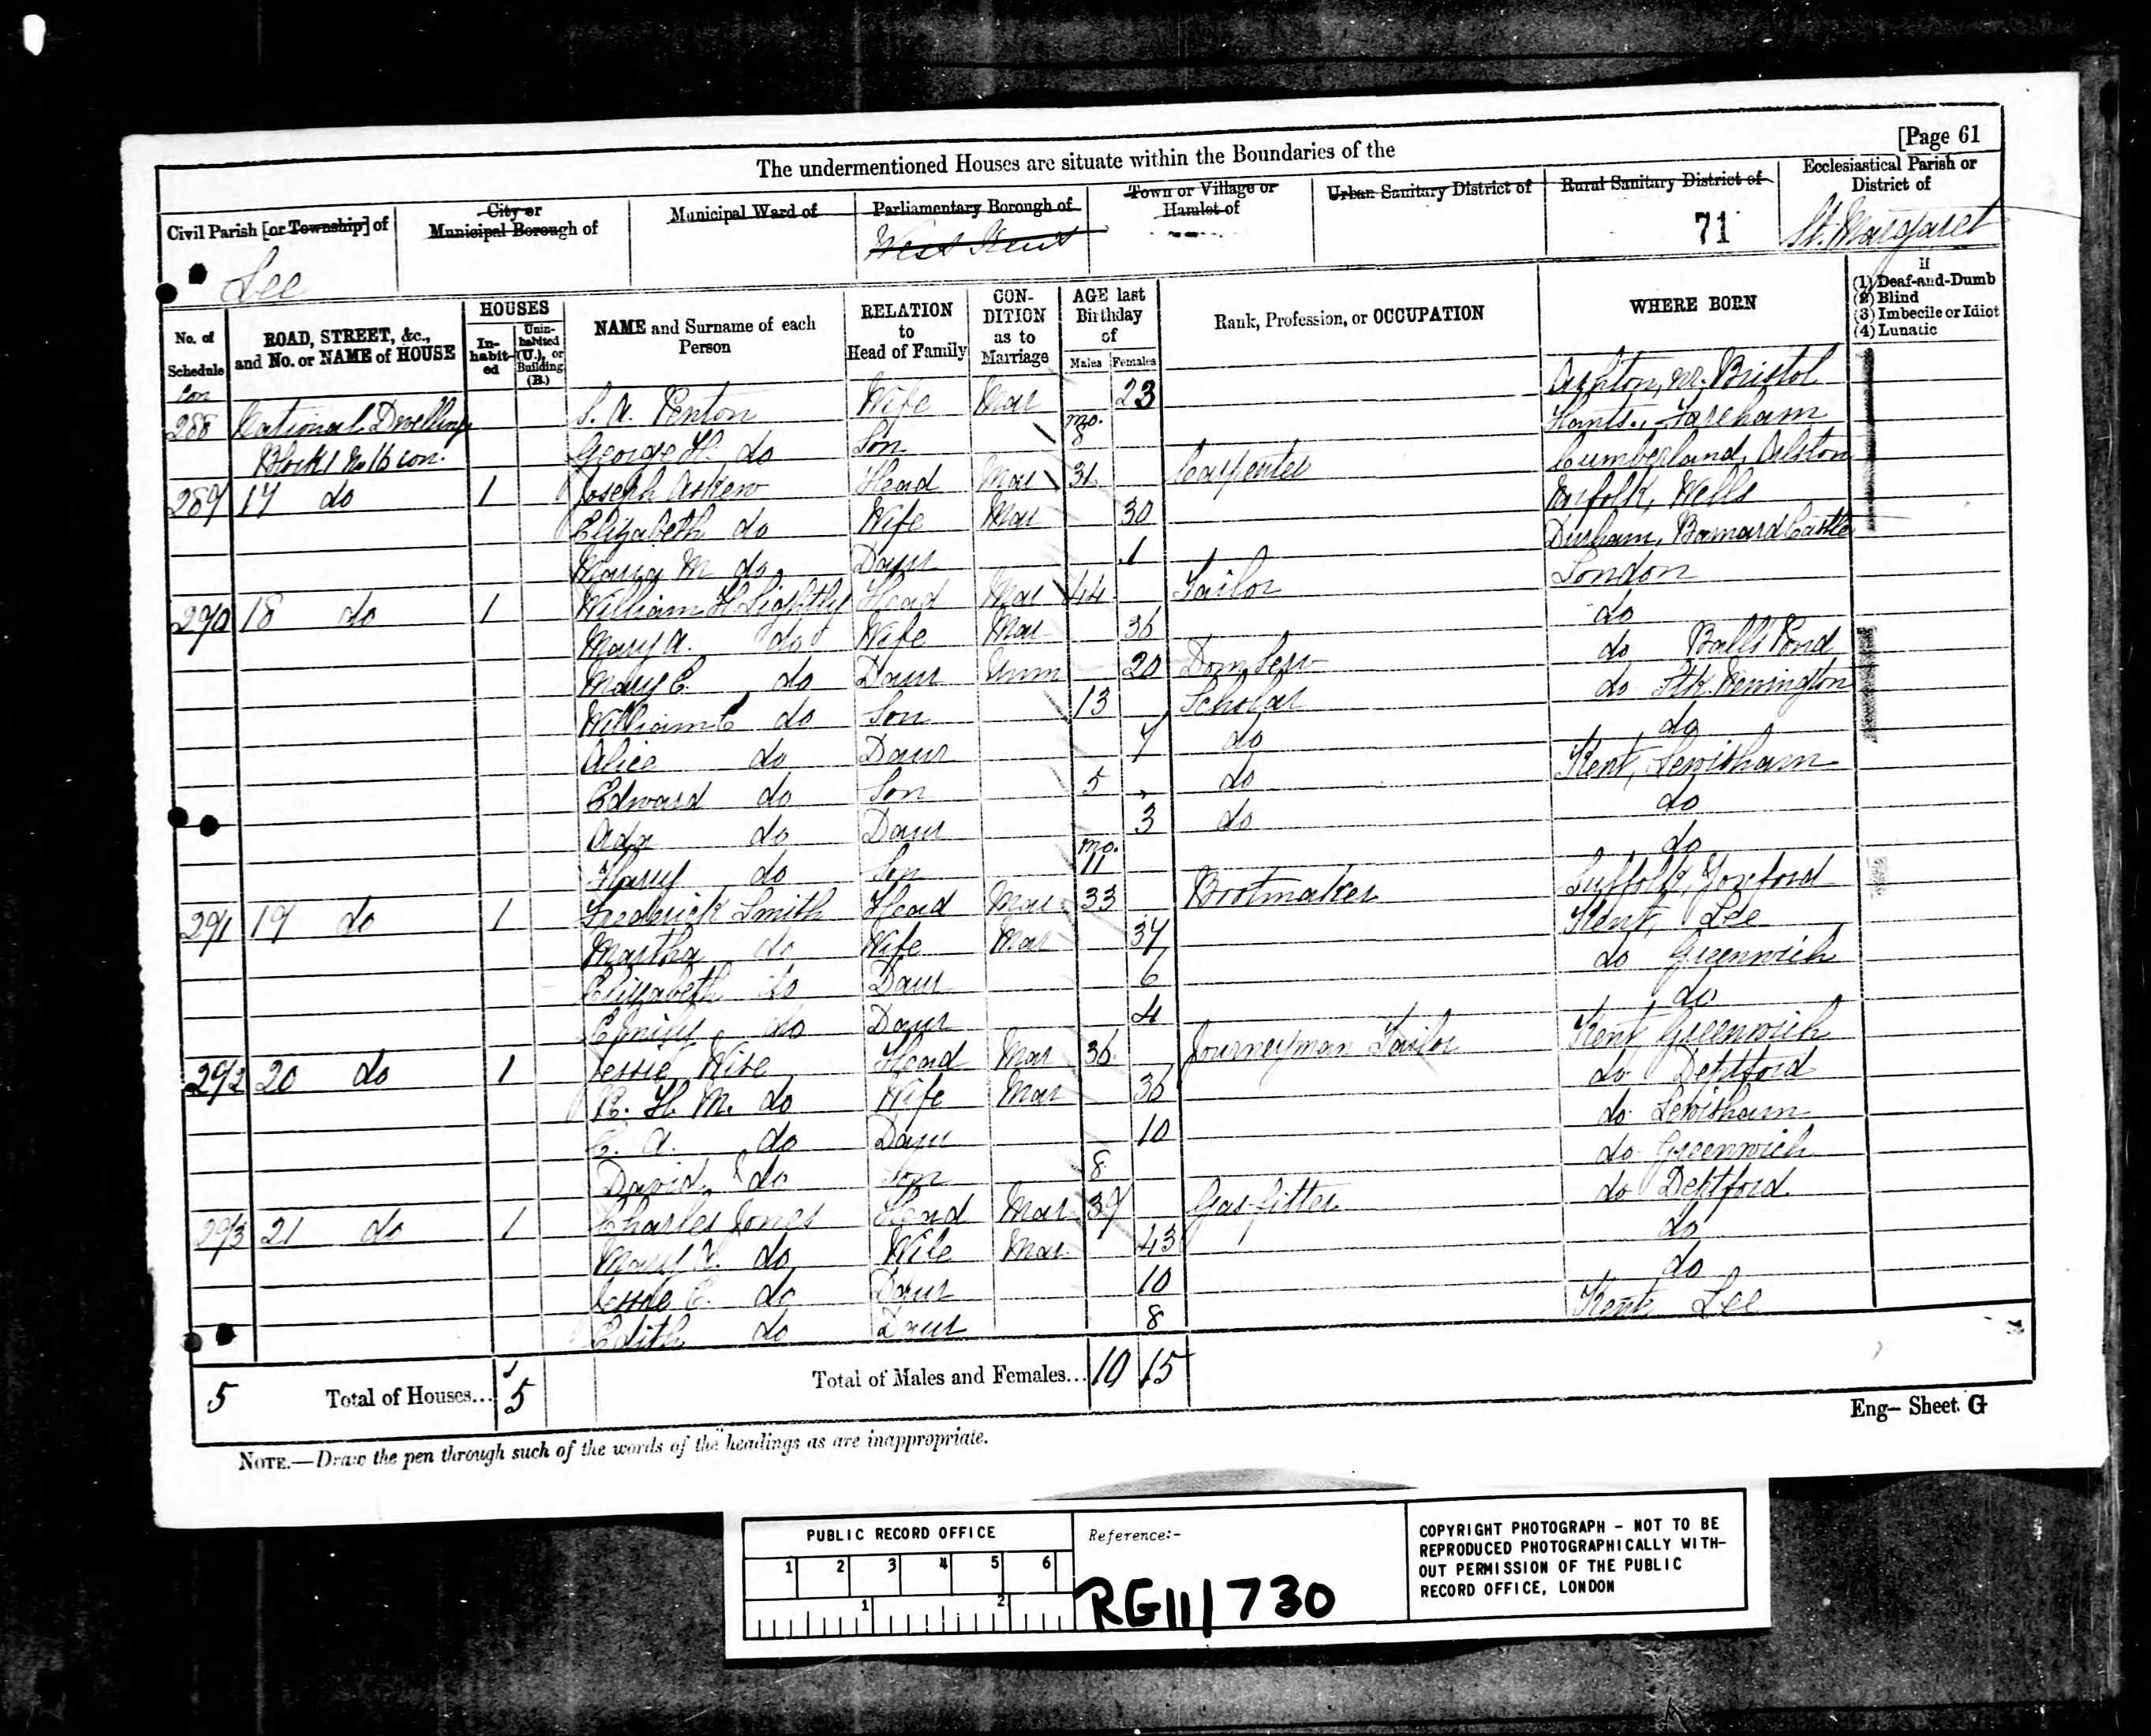 [Page 61
The undermentioned Houses are situate within the Boundaries of the
Civil Parish [or Township] of
City or Municipal Borough of
Municipal Ward of
Parliamentary Borough of
Town or Village or Hamlet of
Urban Sanitary District of
Rural Sanitary District of
Ecclesiastical Parish or District of
Lee
West Kent
71
St. Margaret
No. of Schedule
ROAD, STREET, &c., and No. or NAME of HOUSE
HOUSES
In-habit-ed
Unin-habited (U.), or Building (B.)
NAME and Surname of each Person
RELATION to Head of Family
CON-DITION as to Marriage
AGE last Birthday of
Males
Females
Rank, Profession, or OCCUPATION
WHERE BORN
If
(1) Deaf-and-Dumb
(2) Blind
(3) Imbecile or Idiot
(4) Lunatic
Con 288 National Dwellings S. A. Penton Wife Mar 23 Ashton, nr. Bristol
Block 1 No 16 con. George H. do Son mo. 8 Hants., Fareham
289 17 do 1 Joseph Askew Head Mar 31 Carpenter Cumberland, Alston
Elizabeth do Wife Mar 30 Norfolk, Wells
Mary M do Daur 1 Durham, Barnard Castle
290 18 do 1 William H Lightly Head Mar 44 Tailor London
Mary A. do Wife Mar 36 do
Mary E. do Daur Unm 20 Dom Serv do Balls Pond
William C do Son 13 Scholar do Stk. Newington
Alice do Daur 7 do do
Edward do Son 5 do Kent, Lewisham
Ada do Daur 3 do do
Harry do Son mo. 11 do
291 19 do 1 Frederick Smith Head Mar 33 Bootmaker Suffolk, Yoxford
Martha do Wife Mar 37 Kent, Lee
Elizabeth do Daur 6 do Greenwich
Emily do Daur 4 do
292 20 do 1 Jessie Wise Head Mar 36 Journeyman Tailor Kent Greenwich
R. H. M. do Wife Mar 36 do Deptford
E. A. do Daur 10 do Lewisham
David do Son 8 do Greenwich
293 21 do 1 Charles Jones Head Mar 39 Gas fitter do Deptford
Mary do Wife Mar 43 do
Jessie E. do Daur 10 do
Edith do Daur 8 Kent, Lee
5 Total of Houses... 5 Total of Males and Females... 10 15
Eng— Sheet. G
NOTE.—Draw the pen through such of the words of the headings as are inappropriate.
PUBLIC RECORD OFFICE
1 2 3 4 5 6
1 2
Reference:-
RG11/730
COPYRIGHT PHOTOGRAPH - NOT TO BE
REPRODUCED PHOTOGRAPHICALLY WITH-
OUT PERMISSION OF THE PUBLIC
RECORD OFFICE, LONDON